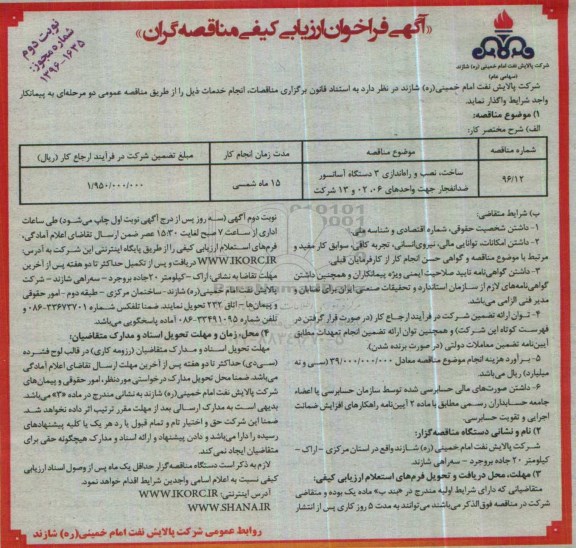 «آگهی فراخوان ارزیابی کیفی مناقصه گران»
نوبت دوم
شماره مجوز:
۱۳۹۶-۱۶۳۵
شرکت پالایش نفت امام خمینی (ره) شازند
(سهامی عام)
شرکت پالایش نفت امام خمینی(ره) شازند در نظر دارد به استناد قانون برگزاری مناقصات، انجام خدمات ذیل را از طریق مناقصه عمومی دو مرحله‌ای به پیمانکار
واجد شرایط واگذار نماید.
۱) موضوع مناقصه:
الف) شرح مختصر کار:
شماره مناقصه
موضوع مناقصه
مدت زمان انجام کار
مبلغ تضمین شرکت در فرآیند ارجاع کار (ریال)
۹۶/۱۲
ساخت، نصب و راه‌اندازی ۳ دستگاه آسانسور
ضدانفجار جهت واحدهای ۰۶، ۰۲ و ۱۳ شرکت
۱۵ ماه شمسی
۱/۹۵۰/۰۰۰/۰۰۰
ب) شرایط متقاضی:
۱- داشتن شخصیت حقوقی، شماره اقتصادی و شناسه ملی.
۲- داشتن امکانات، توانایی مالی، نیروی‌انسانی، تجربه کافی، سوابق کار مفید و
مرتبط با موضوع مناقصه و گواهی حسن انجام کار از کارفرمایان قبلی.
۳- داشتن گواهی‌نامه تایید صلاحیت ایمنی ویژه پیمانکاران و همچنین داشتن
گواهی‌نامه‌های لازم از سازمان استاندارد و تحقیقات صنعتی ایران برای نصابان و
مدیر فنی الزامی می‌باشد.
۴- توان ارائه تضمین شرکت در فرآیند ارجاع کار (در صورت قرار گرفتن در
فهرست کوتاه این شرکت) و همچنین توان ارائه تضمین انجام تعهدات مطابق
آیین‌نامه تضمین معاملات دولتی (در صورت برنده شدن).
۵- برآورد هزینه انجام موضوع مناقصه معادل ۳۹/۰۰۰/۰۰۰/۰۰۰ (سی و نه
میلیارد) ریال می‌باشد.
۶- داشتن صورت‌های مالی حسابرسی شده توسط سازمان حسابرسی یا اعضاء
جامعه حسابداران رسمی مطابق با ماده ۲ آیین‌نامه راهکارهای افزایش ضمانت
اجرایی و تقویت حسابرسی.
۲) نام و نشانی دستگاه مناقصه‌گزار:
شرکت پالایش نفت امام خمینی (ره) شازند واقع در استان مرکزی - اراک -
کیلومتر ۲۰ جاده بروجرد - سه‌راهی شازند.
۳) مهلت، محل دریافت و تحویل فرم‌های استعلام ارزیابی کیفی:
متقاضیانی که دارای شرایط اولیه مندرج در «بند ب» ماده یک بوده و متقاضی
شرکت در مناقصه فوق‌الذکر می‌باشند می‌توانند به مدت ۵ روز کاری پس از انتشار
نوبت دوم آگهی (سه روز پس از درج آگهی نوبت اول چاپ می‌شود) طی ساعات
اداری از ساعت ۷ صبح لغایت ۱۵:۳۰ عصر ضمن ارسال تقاضای اعلام آمادگی،
فرم‌های استعلام ارزیابی کیفی را از طریق پایگاه اینترنتی این شرکت به آدرس:
WWW.IKORC.IR دریافت و پس از تکمیل حداکثر تا دو هفته پس از آخرین
مهلت تقاضا به نشانی: اراک - کیلومتر ۲۰ جاده بروجرد - سه‌راهی شازند - شرکت
پالایش نفت امام خمینی(ره) شازند - ساختمان مرکزی - طبقه دوم - امور حقوقی
و پیمان‌ها - اتاق ۲۳۲ تحویل نمایند. ضمنا تلفکس شماره ۳۳۶۷۳۷۰۱-۰۸۶ و
تلفن شماره ۳۳۴۹۱۰۹۵-۰۸۶ آماده پاسخگویی می‌باشد.
۴) محل، زمان و مهلت تحویل اسناد و مدارک متقاضیان:
مهلت تحویل اسناد و مدارک متقاضیان (رزومه کاری) در قالب لوح فشرده
(سی‌دی) حداکثر تا دو هفته پس از آخرین مهلت ارسال تقاضای اعلام آمادگی
می‌باشد ضمنا محل تحویل مدارک درخواستی موردنظر، امور حقوقی و پیمان‌های
شرکت پالایش نفت امام خمینی (ره) شازند به نشانی مندرج در ماده «۳» می‌باشد
بدیهی است به مدارک ارسالی بعد از مهلت مقرر ترتیب اثر داده نخواهد شد.
ضمنا این شرکت حق و اختیار تام و تمام قبول یا رد هر یک یا کلیه پیشنهادهای
رسیده را دارا می‌باشد و دادن پیشنهاد و ارائه اسناد و مدارک هیچگونه حقی برای
متقاضیان ایجاد نمی کند.
لازم به ذکر است دستگاه مناقصه‌گزار حداقل یک ماه پس از وصول اسناد ارزیابی
کیفی نسبت به اعلام اسامی واجدین شرایط اقدام خواهد نمود.
آدرس اینترنتی: WWW.IKORC.IR
WWW.SHANA.IR
روابط عمومی شرکت پالایش نفت امام خمینی (ره) شازند